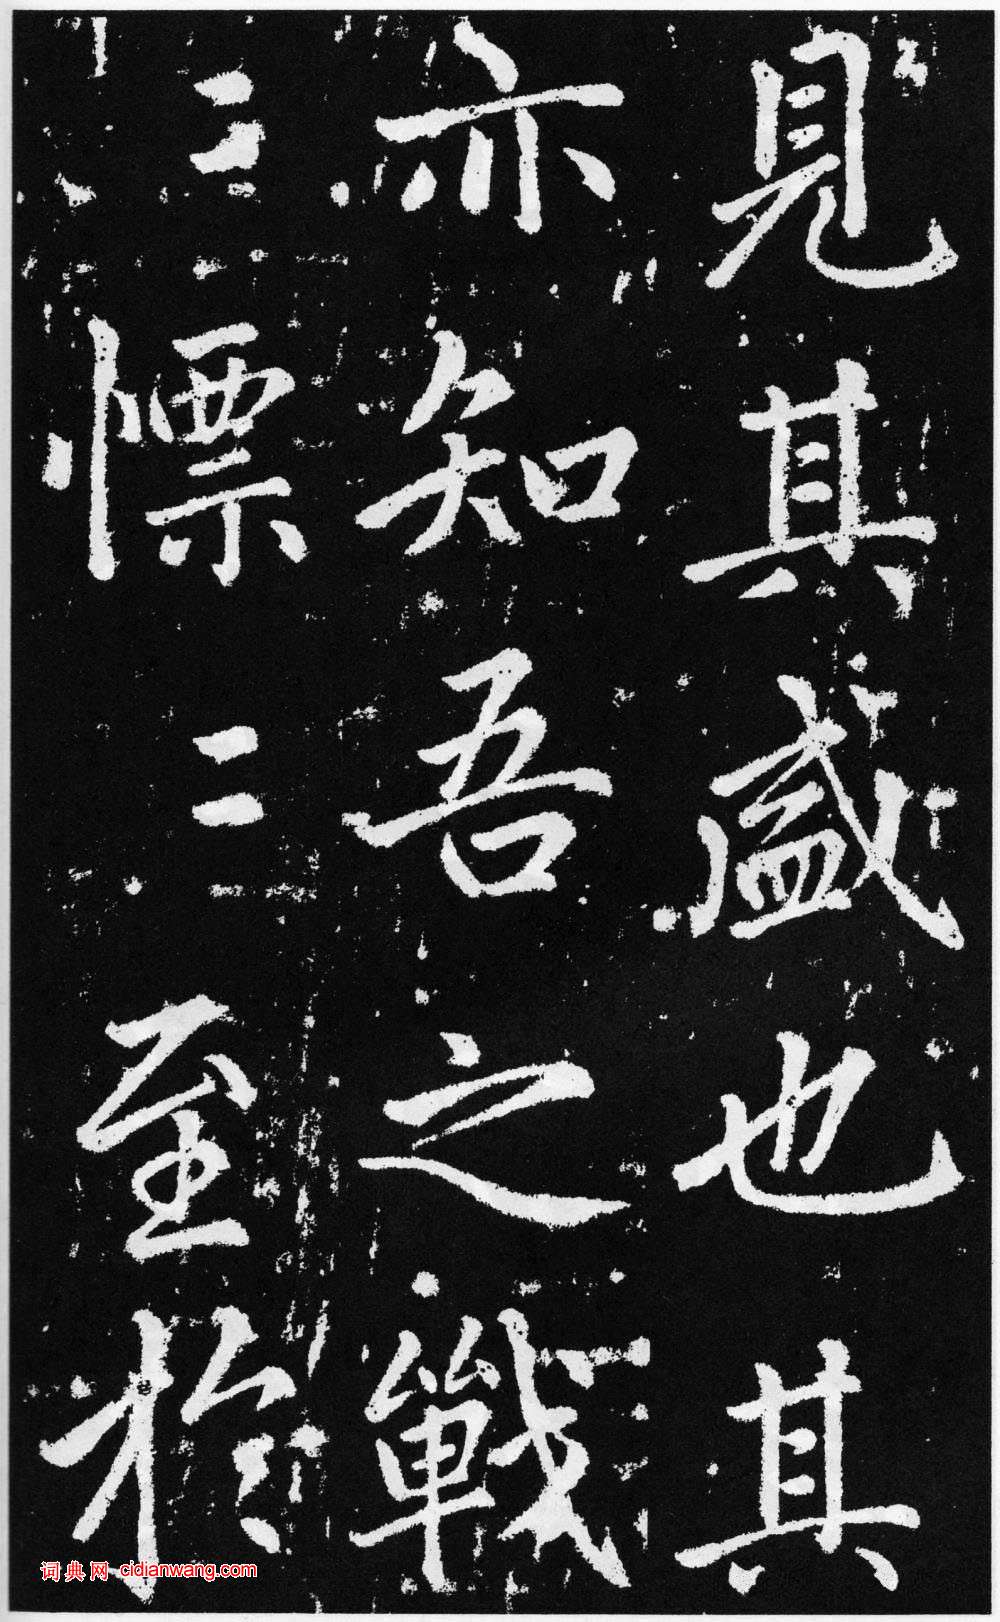 見其盛也其
亦知吾之戰
〻慓〻至於
词典网 cidianwang.com